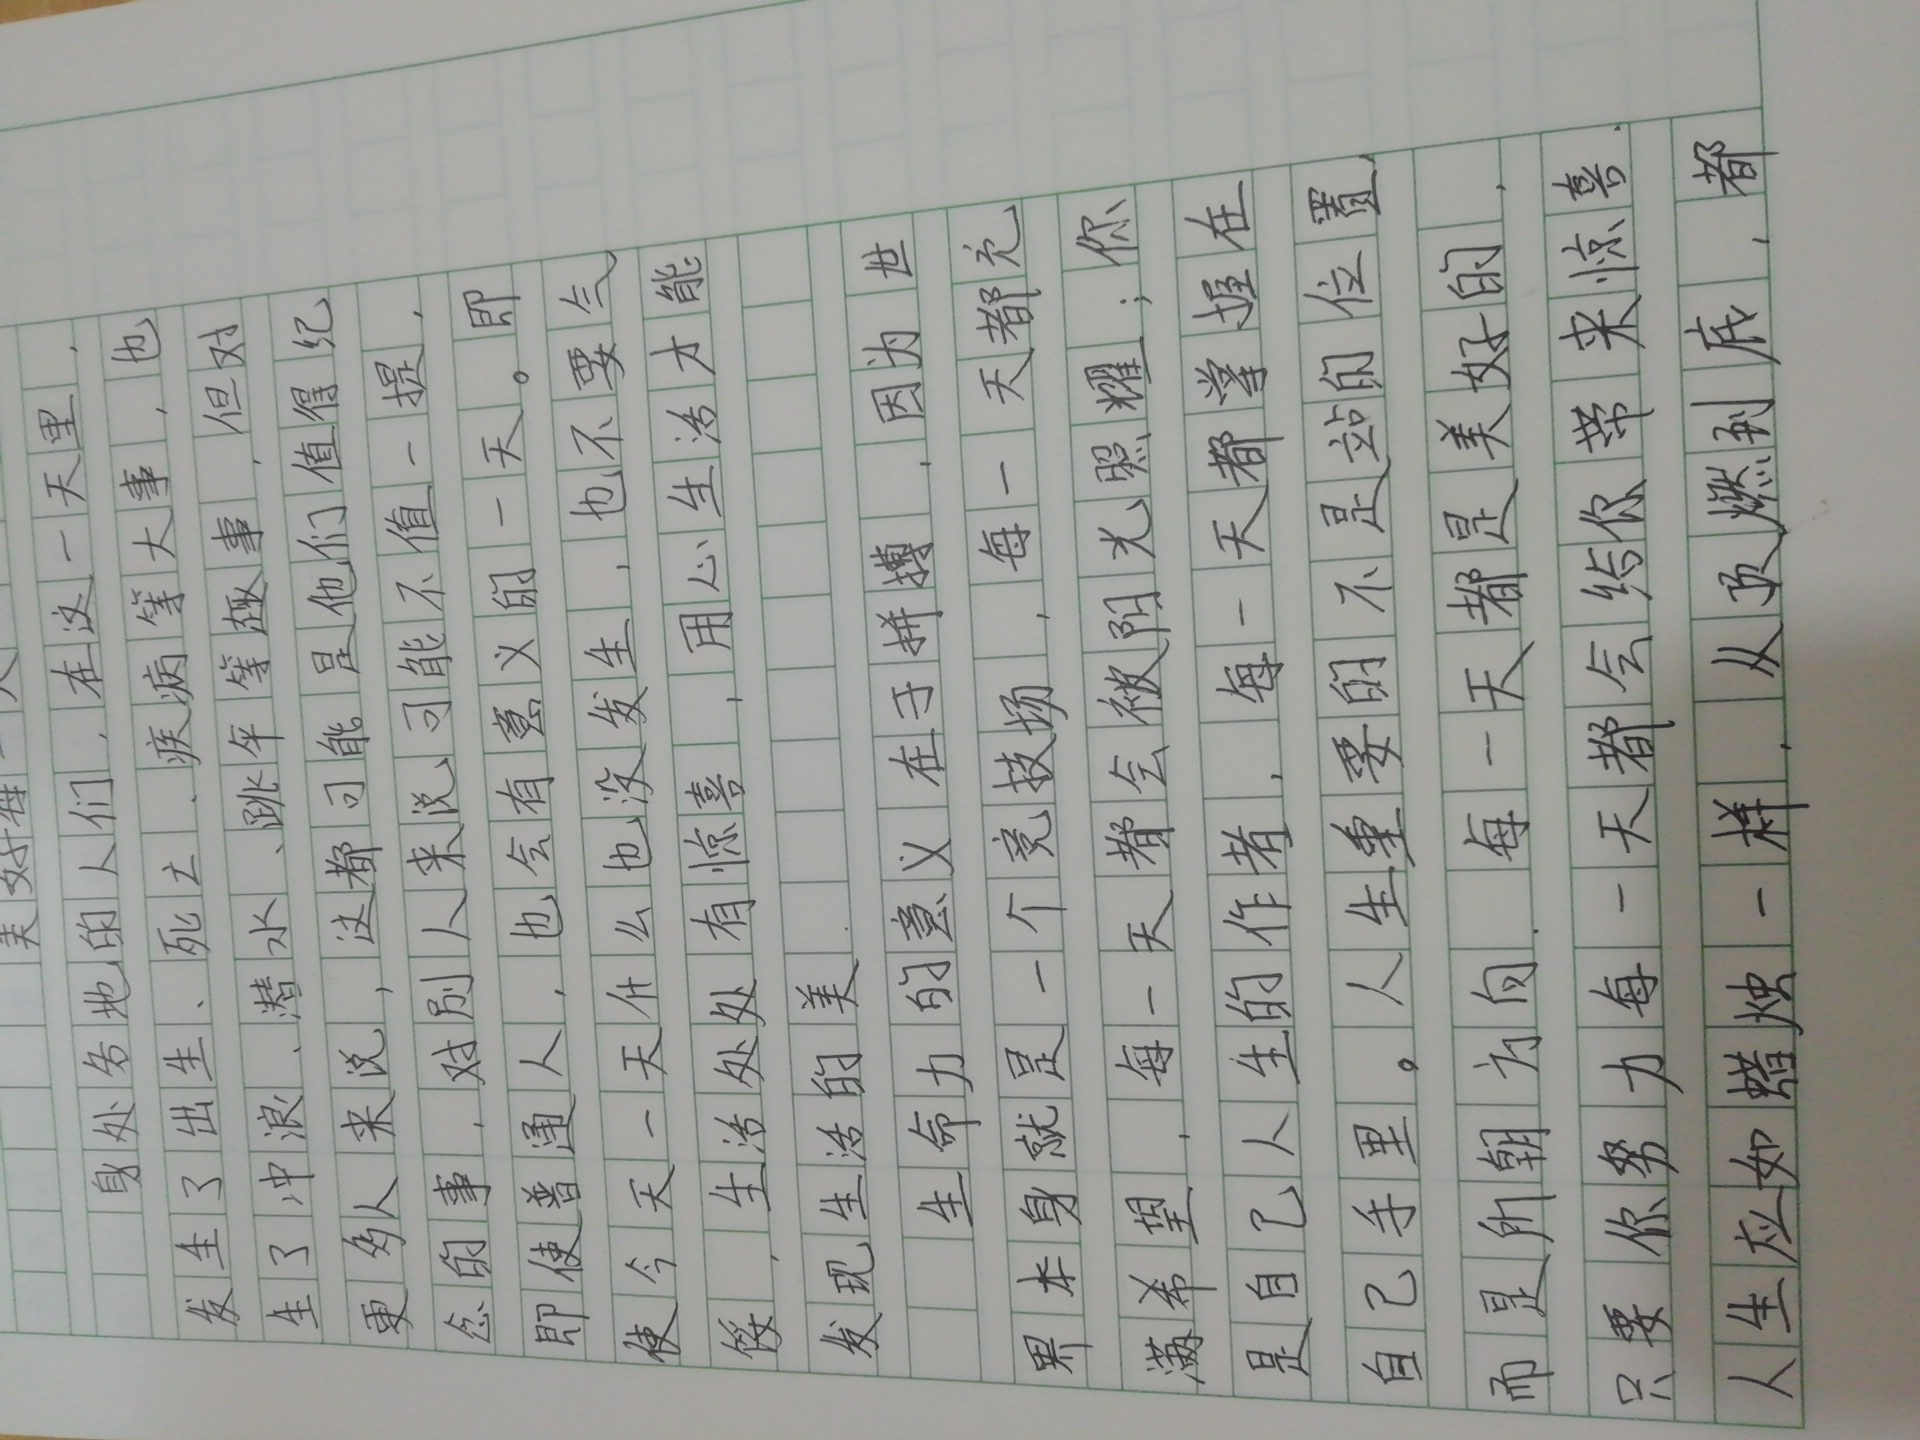 美好每一天
身处各地的人们，在这一天里，
发生了出生、死亡、疾病等大事，也
生了冲浪、潜水、跳伞等趣事，但对
更多人来说，这都可能是他们值得纪
念的事，对别人来说可能不值一提，
即使普通人，也会有意义的一天。即
使今天一天什么也没发生，也不要气
馁，生活处处有惊喜，用心生活才能
发现生活的美.
生命力的意义在于拼搏，因为世
界本身就是一个竞技场，每一天都充
满希望，每一天都会被阳光照耀；你
是自己人生的作者，每一天都掌握在
自己手里。人生重要的不是站的位置，
而是所朝方向.每一天都是美好的，
只要你努力每一天都会给你带来惊喜.
人生应如蜡烛一样，从顶燃到底，都